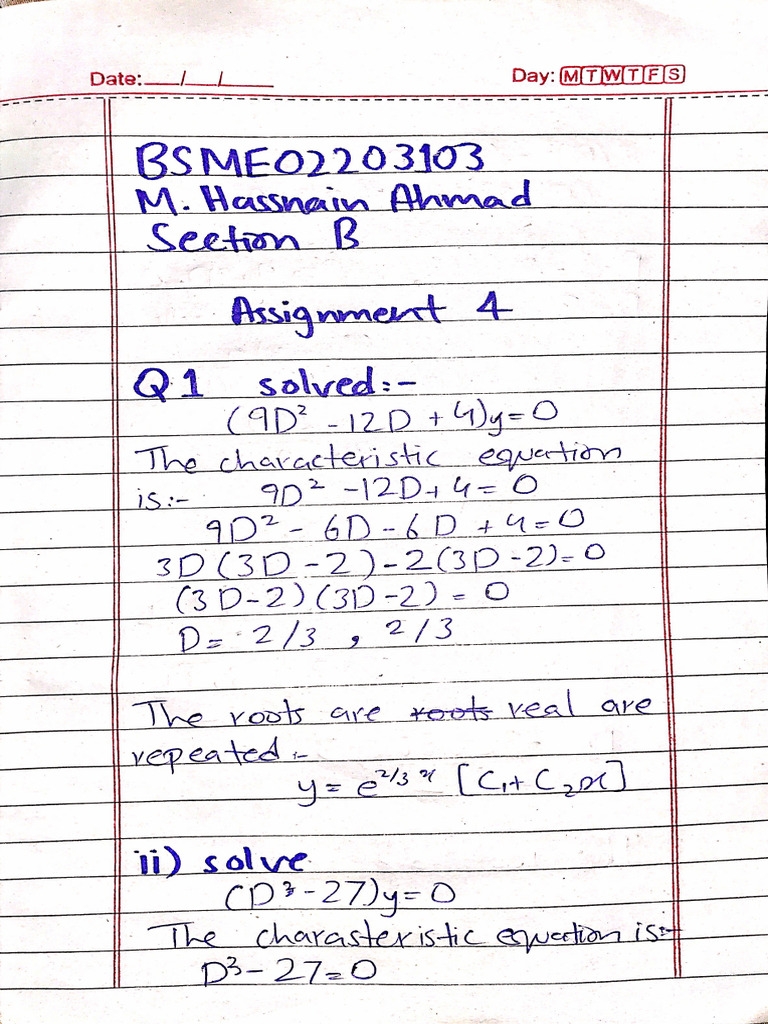 Date:___/___/_____ Day: M T W T F S
BSME02203103
M. Hassnain Ahmad
Section B
Assignment 4
Q1 solved:-
(9D² - 12D + 4)y = 0
The characteristic equation
is:- 9D² - 12D + 4 = 0
9D² - 6D - 6D + 4 = 0
3D(3D - 2) - 2(3D - 2) = 0
(3D - 2)(3D - 2) = 0
D = 2/3 , 2/3
The roots are roots real are
repeated:-
y = e^(2/3 x) [C₁ + C₂x]
ii) solve
(D³ - 27)y = 0
The charasteristic equation is:-
D³ - 27 = 0